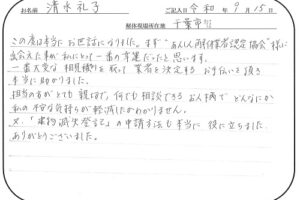 お名前 清水礼子 ご記入日 令和 年 9月 15日
解体現場所在地 千葉市
この度は本当にお世話になりました。まず"あんしん解体業者認定協会"様に
出会えた事が私にとって一番の幸運だったと思います。
一番大変な相見積りを取って業者を決定するお手伝いを頂き
本当に助かりました。
担当の方がとても親切で、何でも相談できるお人柄でどんなにか
私の不安な気持ちが軽減したかわかりません。
又、「建物滅失登記」の申請方法も本当に役に立ちました。
ありがとうございました。